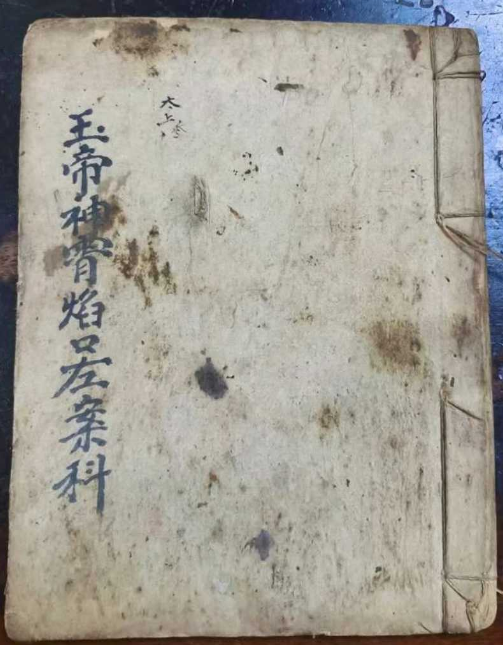 太上
玉帝神霄焰口左案科